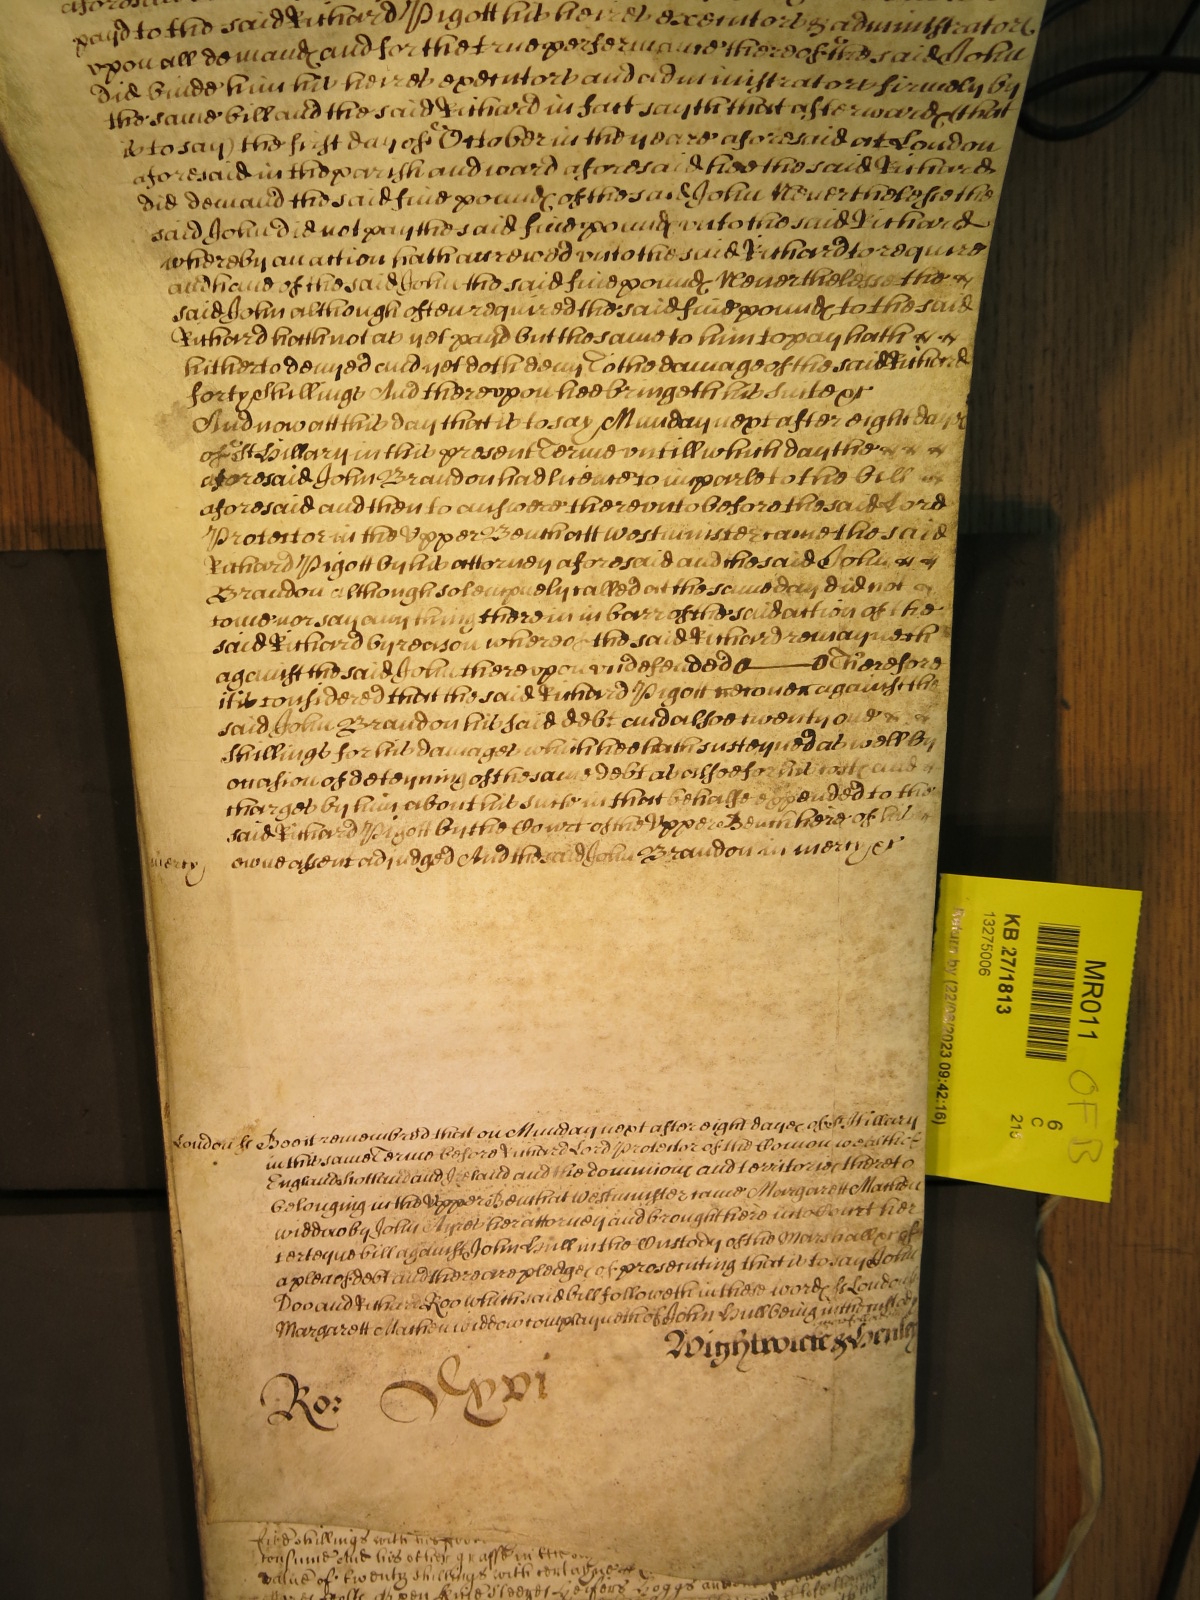 payd to the said Richard Pigott his heires executors & administrators
vpon all demand and for the true performance thereof the said John
did binde him his heires executors and administrators firmely by
the same bill and the said Richard in fact sayth that afterwards (that
is to say) the first day of October in the yeare aforesaid at London
aforesaid in the parish and ward aforesaid hee the said Richard
did demand the said five pounds of the said John Neverthelesse the
said John did not pay the said five pounds vnto the said Richard
whereby an action hath accrewed vnto the said Richard to require
and have of the said John the said five pounds Neverthelesse the
said John although often required the said five pounds to the said
Richard hath not as yet payd but the same to him to pay hath
hitherto denyed and yet doth deny To the damage of the said Richard
forty shillings And therevpon hee bringeth his suite &c
And now att this day that is to say Munday next after eight dayes
of St Hillary in this present Terme vntill which day the
aforesaid John Brandon had licence to imparle to the bill
aforesaid and then to answere therevnto before the said Lord
Protector in the Vpper Bench att Westminster came the said
Richard Pigott by his attorney aforesaid and the said John
Brandon although solempnely called at the same day did not
come nor say any thing therein in barr of the said action of the
said Richard by reason whereof the said Richard remayneth
against the said John therevpon vndefended Therefore
it is considered that the said Richard Pigott recover against the
said John Brandon his said debt and alsoe twenty one
shillings for his damages which hee hath susteyned as well by
occasion of deteyning of the same debt as alsoe for his costs and
charges by him about his suite in that behalfe expended to the
said Richard Pigott by the Court of the Vpper Bench here of his
owne assent adjudged And the said John Brandon in mercy &c
mercy
London ss Bee it remembred that on Munday next after eight dayes of St Hillary
in this same Terme before Richard Lord Protector of the Comon wealth of
England Scotland and Ireland and the dominions and territories thereto
belonging in the Vpper Bench at Westminster came Margarett Mathew
widdow by John Ayres her attorney and brought here into Court her
certeyne bill against John Hull in the Custody of the Marshall &c of
a plea of debt and there are pledges of prosecuting that is to say John
Doo and Richard Roo which said bill followeth in these words ss London
Margarett Mathew widdow complayneth of John Hull being in the custody
Wightwick & Henley
Ro: Clxvi
five shillings with
consume And his other grasse in the
value of twenty shillings with certaine
MR011
KB 27/1813
13275006
Return by (22/08/2023 09:42:16)
6
C
219
OF B